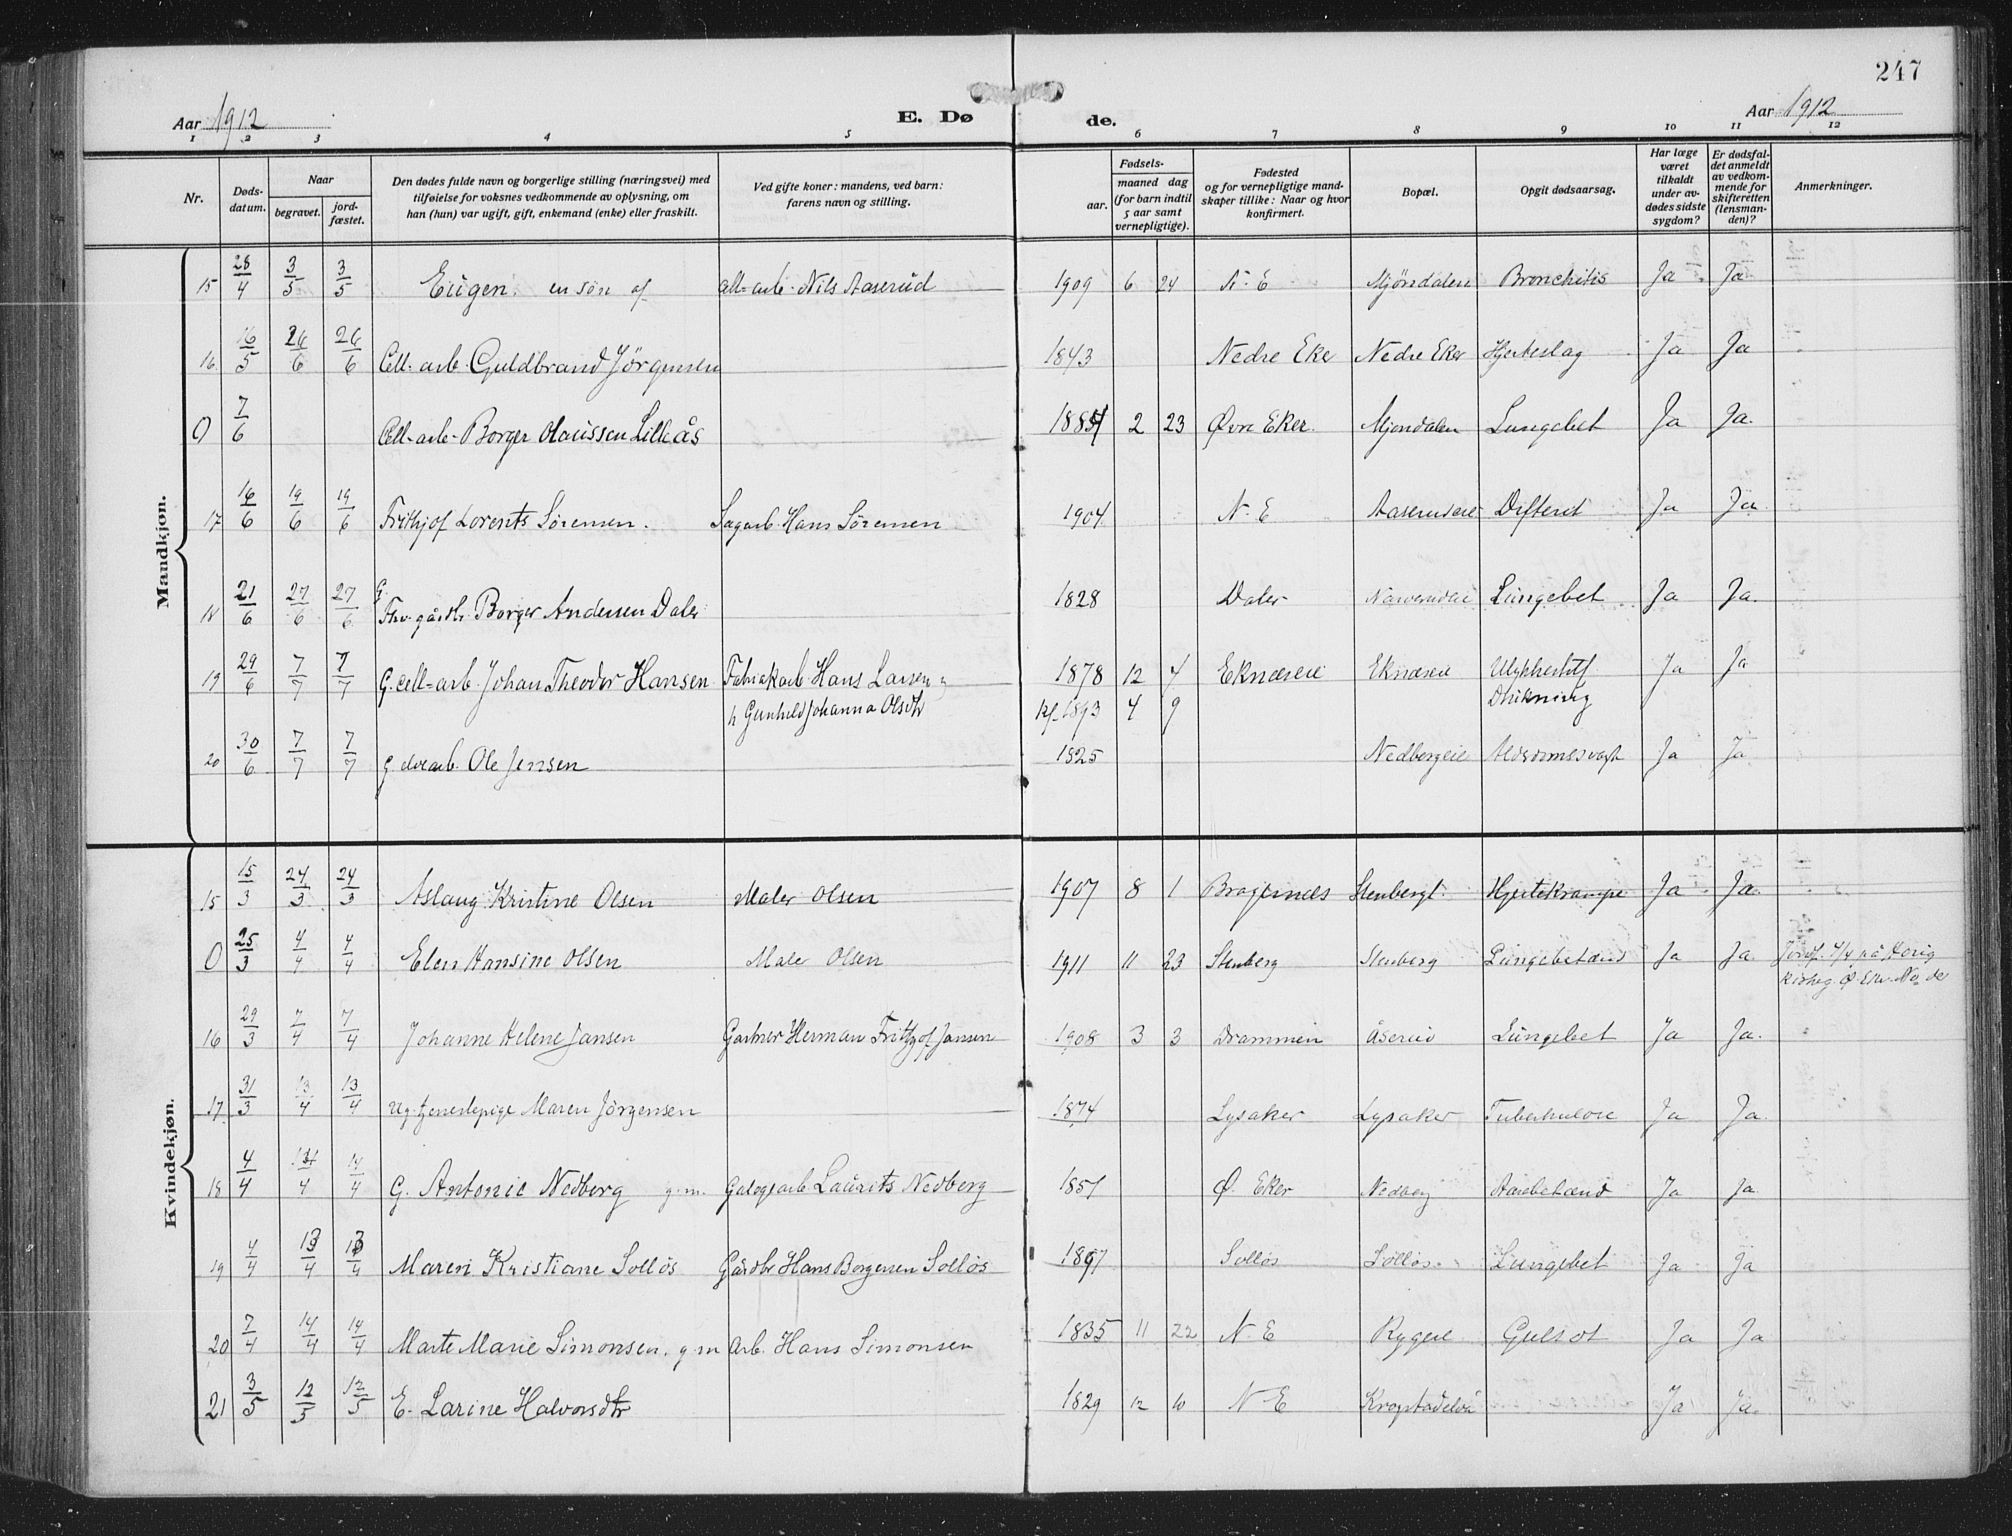 247
Aar 1912 E. Dø de. Aar 1912
1 2 3 4 5 6 7 8 9 10 11 12
Nr. Døds-datum. Naar begravet. jord-fæstet. Den dødes fulde navn og borgerlige stilling (næringsvei) med tilføielse for voksnes vedkommende av oplysning, om han (hun) var ugift, gift, enkemand (enke) eller fraskilt. Ved gifte koner: mandens, ved barn: farens navn og stilling. Fødsels- aar. maaned dag (for barn indtil 5 aar samt vernepligtige). Fødested og for vernepligtige mandskaper tillike: Naar og hvor konfirmert. Bopæl. Opgit dødsaarsag. Har læge været tilkaldt under avdødes sidste sygdom? Er dødsfaldet anmeldt av vedkommende for skifteretten (lensmanden)? Anmerkninger.
Mandkjøn.
15 28/4 3/5 3/5 Eugen. en søn af all-arb. Nils Aaserud 1909 6 24 N. E Mjøndalen Bronchitis Ja Ja
16 16/5 26/6 26/6 Cell. arb. Guldbrand Jörgensen 1843 Nedre Eker Nedre Eker Hjerteslag Ja Ja
0 7/6 Cell-arb- Borger Olaussen Lilleås 1884 2 23 Øvre Eker. Mjøndalen Lungebet Ja Ja.
17 16/6 19/6 19/6 Frithjof Lorents Sörensen. Sagarb. Hans Sörensen 1904 N. E Difterit Ja Ja
18 21/6 27/6 27/6 G. Fhv. gårdbr. Borger Andersen Daler 1828 Daler Lungebet Ja Ja.
19 29/6 7/7 7/7 G. cell-arb. Johan Theodor Hansen Fabrikarb. Hans Larsen 1878 12 4 Eknæseie Eknæseie Ulykkestilf. Ja Ja
h Gunhild Johanna Olsdtr kf. 1893 4 9 Drukning
20 30/6 7/7 7/7 G. elvearb. Ole Jensen 1825 Nedbergeie Alderdomssvagh Ja Ja
Kvindekjøn.
15 15/3 24/3 24/3 Aslaug Kristine Olsen Maler Olsen 1907 8 1 Bragernæs Stenbergt. Hjertekrampe Ja Ja.
0 25/3 4/4 4/4 Elen Hansine Olsen Maler Olsen 1911 11 23 Stenberg Stenberg Lungebetænd Ja Ja Jordf. 4/4 på
kirkeg. Ø. Eker.
16 29/3 7/4 7/4 Johanne Helene Jansen Gartner Herman Frithjof Jansen 1908 3 3 Drammen Åserud Lungebet Ja Ja.
17 31/3 13/4 13/4 ug. tjenestepige Maren Jörgensen 1874 Lysaker Lysaker Tuberkulose Ja Ja.
18 4/4 14/4 14/4 G. Antonie Nedberg g. m. Laurits Nedberg 1851 Ø. Eker Nedberg Ja Ja.
19 4/4 13/4 13/4 Maren Kristiane Solløs Gårdbr Hans Borgersen Solløs 1897 Solløs Solløs. Lungebet Ja Ja
20 7/4 14/4 14/4 Marte Marie Simonsen. g m Arb. Hans Simonsen 1835 11 22 N. E Rygeie Gulsot Ja Ja
21 3/5 12/5 12/5 E. Larine Halvorsdtr 1829 12 10 N E Ja Ja.